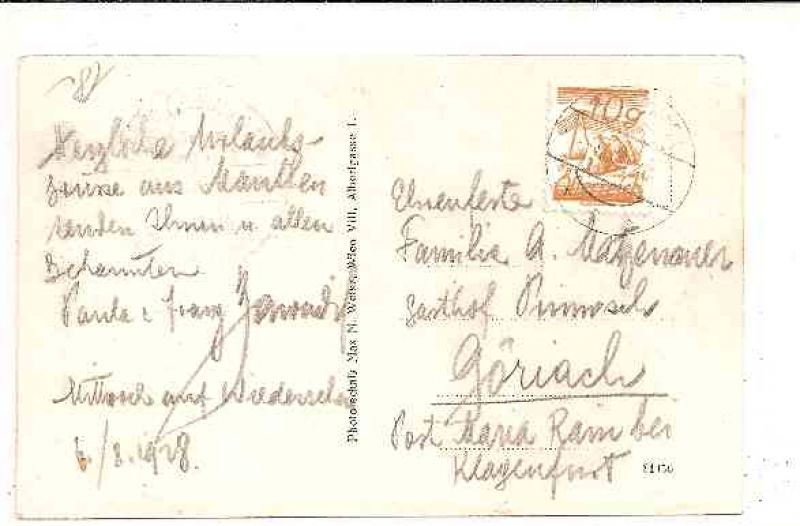 Herzliche Urlaubs-
grüsse aus Mauthen
senden Ihnen u allen
Bekannten
Paula u Franz
auf Wiedersehen
6./8.1928.
Photo-schatz Max M. Weiser, Wien VIII, Albertgasse 1.
10g
Ehrenfeste
Familie A. Matzenauer
Gasthof
Göriach
Post Maria Rain bei
Klagenfurt